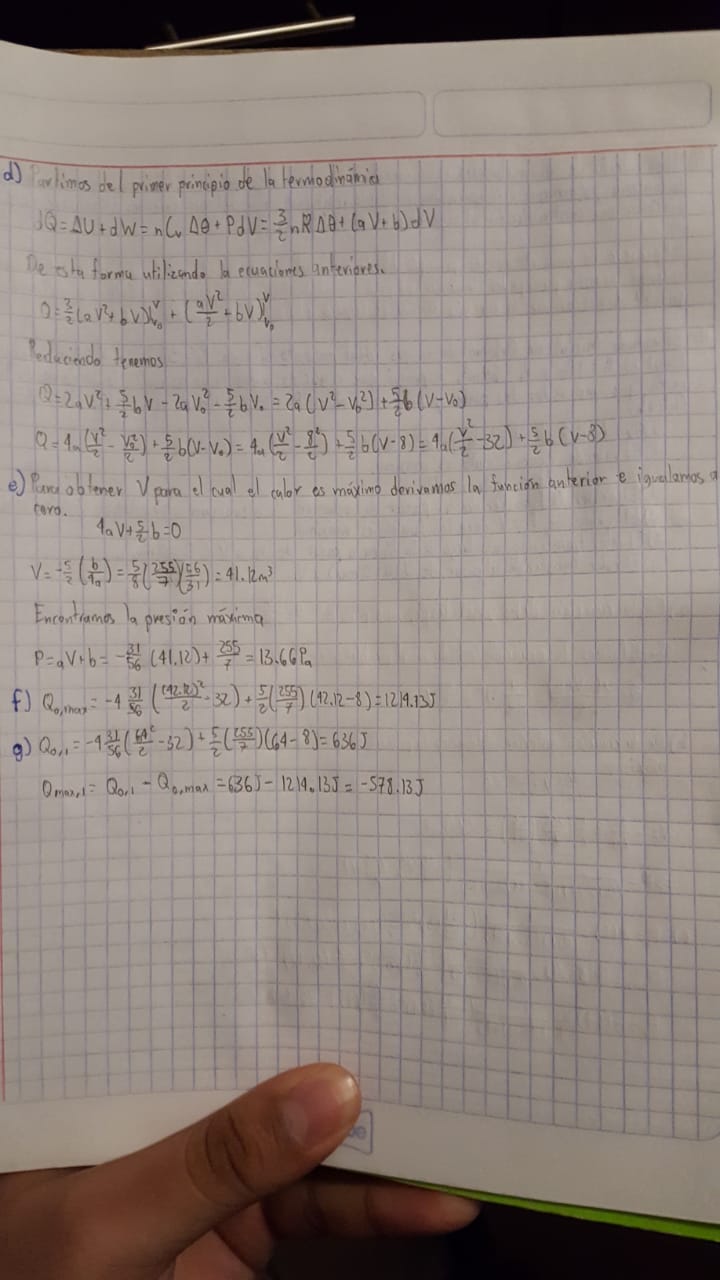 d) Partimos del primer principio de la termodinámia
dQ=ΔU+dW=nCv Δθ+PdV=3/2 nRΔθ+(aV+b)dV
De esta forma utilizando la ecuaciones anteriores.
Q=3/2(aV²+bV)|V V₀+(aV²/2+bV)|V V₀
Reduciendo tenemos
Q=2aV²+5/2bV-2aV₀²-5/2bV₀=2a(V²-V₀²)+5/2b(V-V₀)
Q=4a(V²/2-V₀²/2)+5/2b(V-V₀)=4a(V²/2-8²/2)+5/2b(V-8)=4a(V²/2-32)+5/2b(V-8)
e) Para obtener V para el cual el calor es máximo derivamos la función anterior e igualamos a
cero.
4aV+5/2b=0
V=-5/2(b/4a)=5/8(255/7)(56/31)=41.12m³
Encontramos la presión máxima
P=aV+b=-31/56(41.12)+255/7=13.66Pa
f) Q₀,max=-4 31/56((42.12)²/2-32)+5/2(255/7)(42.12-8)=1214.13J
g) Q₀,₁=-4 31/56(64²/2-32)+5/2(255/7)(64-8)=636J
Qmax,1=Q₀,₁-Q₀,max=636J-1214.13J=-578.13J